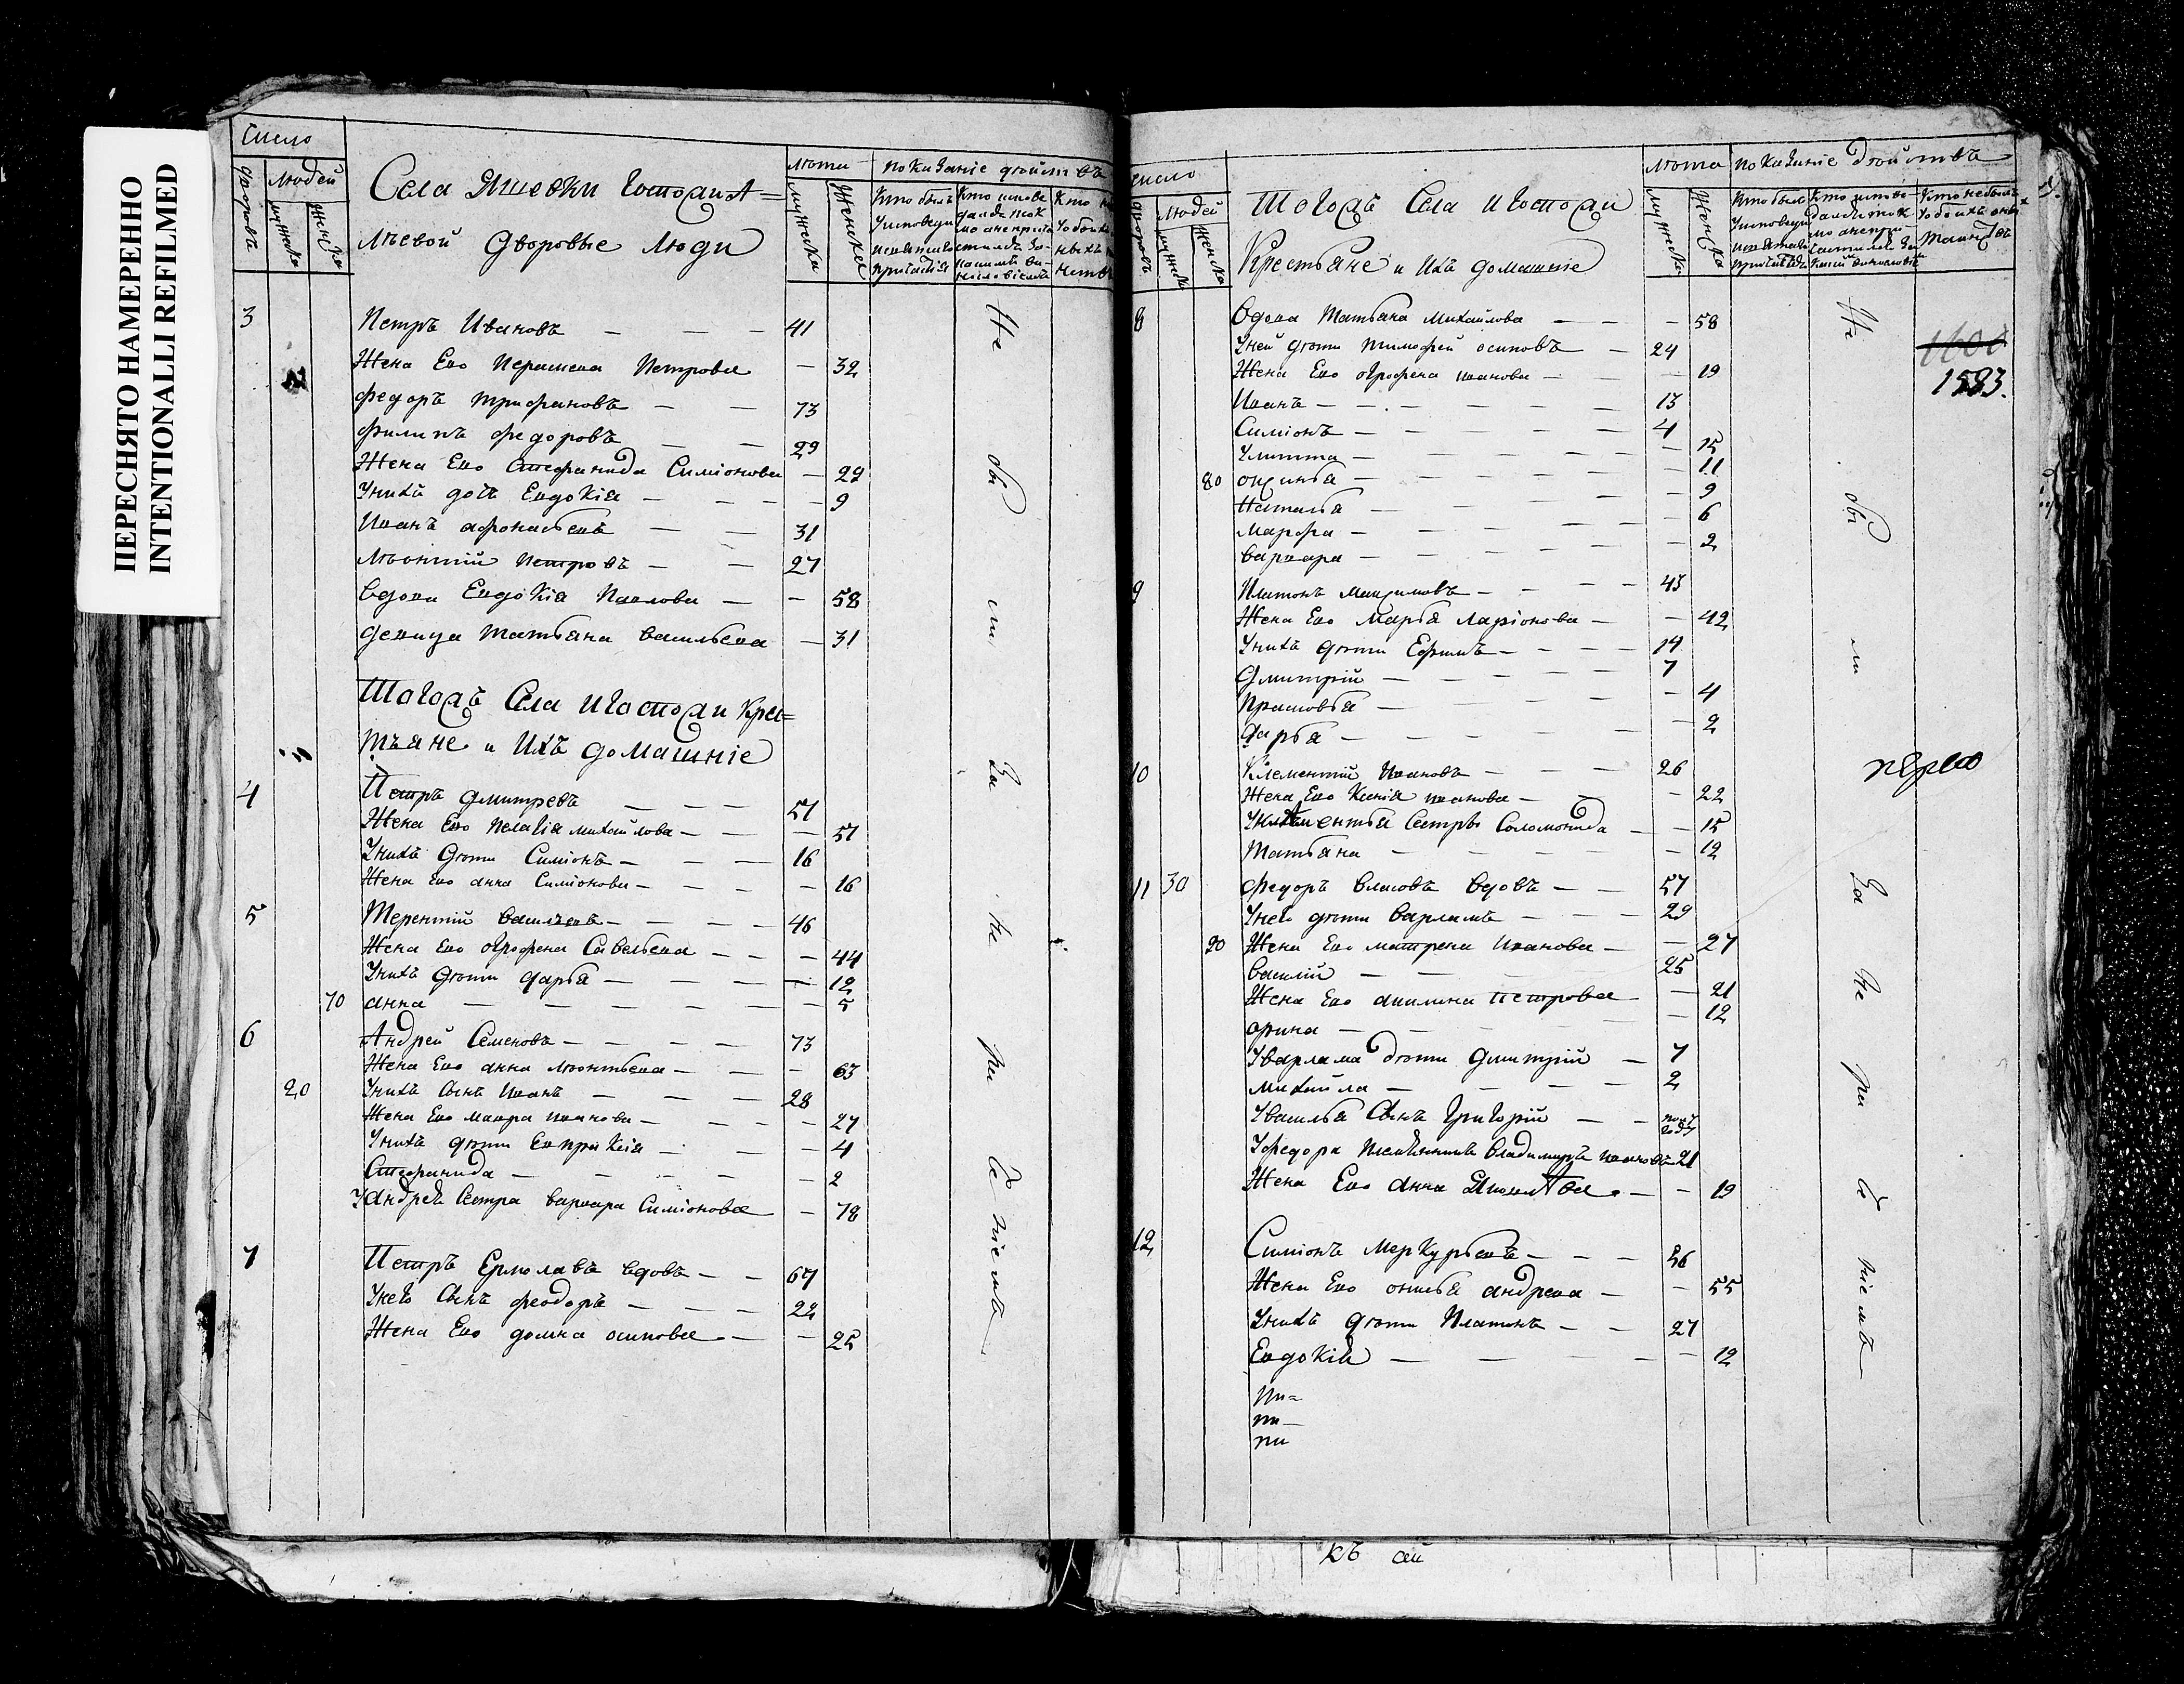 ПЕРЕСНЯТО НАМЕРЕННО
INTENTIONALLI REFILMED
Число
дворовъ
людей
мужеска
женска
Села Госпожи А=
лѣевой Дворовые люди
Лѣта
мужеска
женска
показаніе дѣйствъ
3 Петръ Ивановъ — — — 41
Жена Ево Парасковa Петрова — 32
Федоръ Трифановъ — — 73
Филипъ Федоровъ — — 29
Жена Ево Стефанида Симіонова — 29
Унихъ дочь Евдокіа — — — 9
Иванъ афонасьевъ — — 31
Лѣонтий Петровъ — — 27
Вдова Евдокіа Павлова — — 58
девица Татьяна Васильева — 31
Тогожъ Села и Госпожи Крес=
тьяне и Ихъ домашніе
4 Петръ Дмитревъ — — — 57
Жена Ево Пелагіа Михайлова — — — 57
Унихъ дѣти Симіонъ — — — 16
Жена Ево анна Симіонова — — — — 16
5 Терентий Васильевъ — — — 46
Жена Ево огрофена Савельева — — — 44
Унихъ дѣти дарья — — — — 12
70 анна — — — — — 5
6 Андрей Семеновъ — — — — 73
Жена Ево анна Лѣонтьева — — — 63
20 Унихъ Сынъ Иванъ — — — 28
Жена Ево мавра Иванова — — — — 27
Унихъ дѣти Евпраксіа — — — 4
Стефанида — — — — — 2
УАндреѣ Сестра варвара Симіонова — 78
7 Петръ Ермолавъ вдовъ — — 67
Унего Сынъ феодоръ — — — 22
Жена Ево домна осипова — — 25
Не бы ли За не ри Се ніемъ
Число
дворовъ
людей
мужеска
женска
Тогожъ Села и Госпожи
Крестьяне и Ихъ домашніе
Лѣта
мужеска
женска
показаніе дѣйствъ
8 Вдова Татьяна Михайлова — — — 58
Уней дѣти Тимофей осиповъ — 24
Жена Ево огрофена иванова — — 19
Иванъ — — — — — — 13
Симіонъ — — — — — 4
Улитта — — 15
80 оксинья — — 11
Наталья — — 9
Марфа — — 6
варвара — — — — — 2
9 Платонъ Максимовъ — — — 43
Жена Ево Марья Ларіонова — — 42
Унихъ дѣти Ефимъ — — — — 14
Дмитрий — — — — — 7
Прасковья — — — 4
Дарья — — — — — 2
10 Клементий Ивановъ — — — 26
Жена Ево Ксенія иванова — — — 22
Уклементья Сестры Соломонида — — 15
Татьяна — — — — — 12
11 30 Федоръ Власовъ Вдовъ — — 57
Унего дѣти Варламъ — — — 29
90 Жена Ево матрена Иванова — — 27
Василий — — — 25
Жена Ево акилина Петрова — — 21
орина — — — — 12
Уварлама дѣти Дмитрій — 7
михайла — — — — 2
Увасилья Сынъ Григорій — —
Уфедора Племянникъ Владимиръ ивановъ 21
Жена Ево анна — — 19
12 Симіонъ Меркурьевъ — — — 56
Жена Ево онисья андреева — — 55
Унихъ дѣти Платонъ — — 27
Евдокіа — — — — 12
Не бы ли За не ри Се ніемъ
1600
1583.
къ